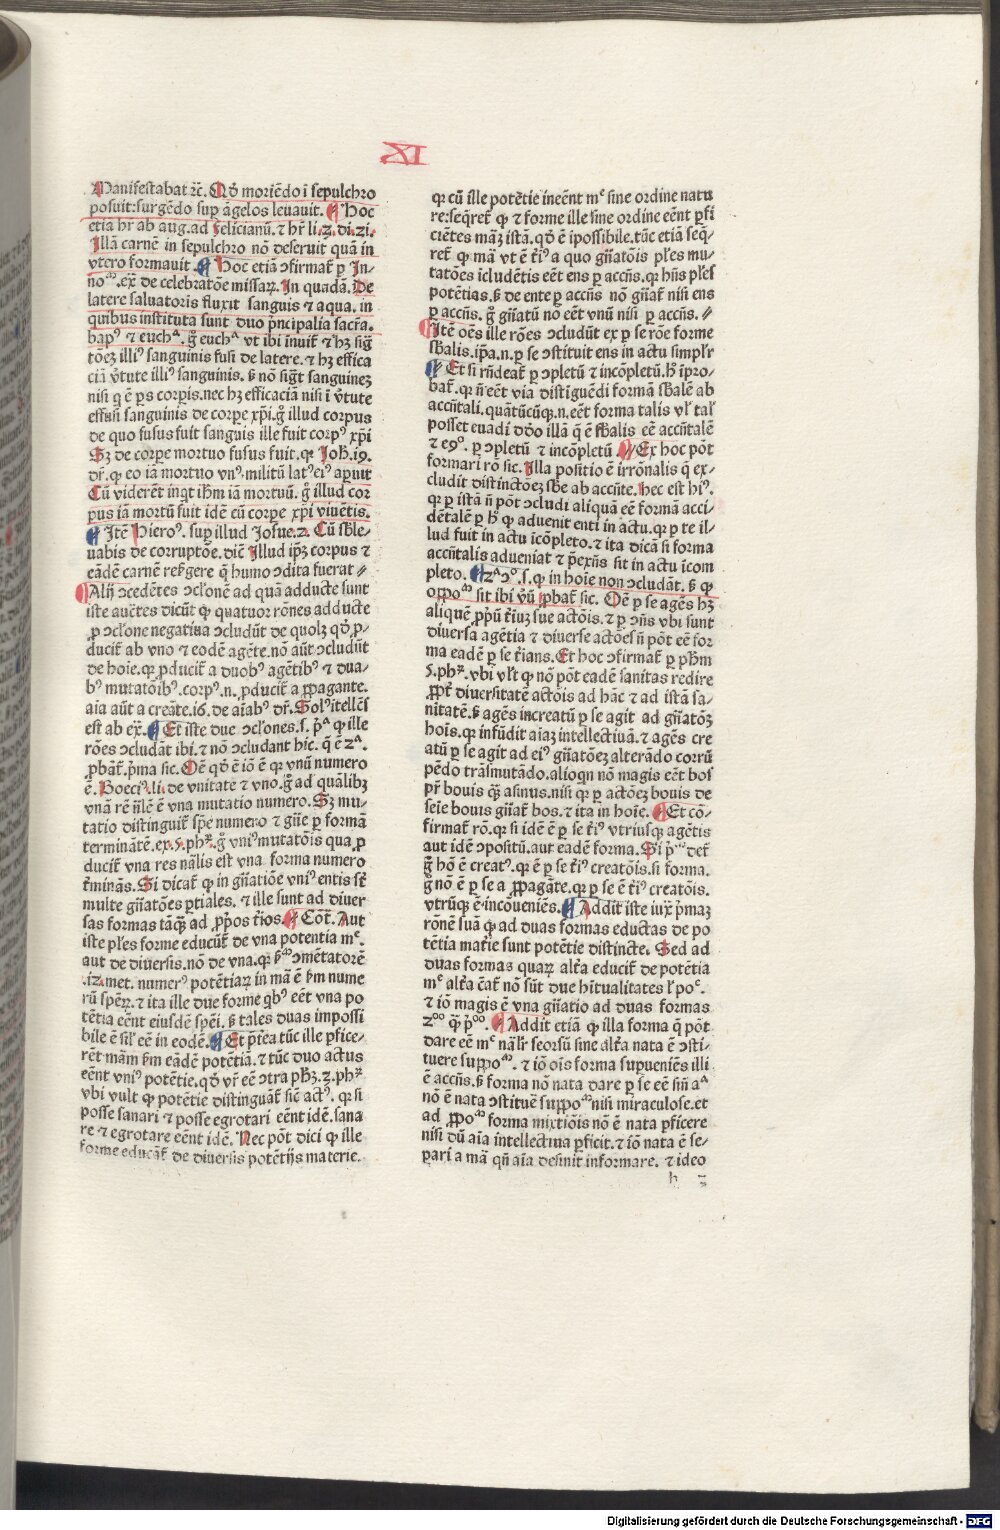 XI
Manifestabat ⁊c̄. Qď moriēdo ī sepulchro
posuit: surgēdo sup āgelos leuauit. Hoc
etia hr̄ ab aug. ad Felicianū. ⁊ hr̄ li. 3. di. 21.
Illā carnē in sepulchro nō deseruit quā in
vtero formauit. Hoc etiā ↄfirmat̄ ꝑ In⸗
noᵐ. ex̄. de celebratōe missaꝝ. In quadā. De
latere saluatoris fluxit sanguis ⁊ aqua. in
quibus instituta sunt duo p̄ncipalia sacr̄a.
bapꝰ ⁊ euchᵃ. g̊ euchᵃ vt ibi inuit̄ ⁊ hꝫ sig̅
tōeꝫ illiꝰ sanguinis fusi de latere. ⁊ hꝫ effica
ciā v̄tute illiꝰ sanguinis. ꝟ nō sig̅t sanguineꝫ
nisi q̄ ē ꝑs corꝑis. nec hꝫ efficaciā nisi ī v̄tute
effusi sanguinis de corꝑe xp̄i. g̊ illud corpus
de quo fusus fuit sanguis ille fuit corpꝰ xp̄i
Sꝫ de corꝑe mortuo fusus fuit. qꝛ Joh. 19.
dr̄. ꝙ eo iā mortuo vnꝰ militū latꝰ eiꝰ aꝑuit
Cū viderēt inqt ihm iā mortuū. g̊ illud cor
pus iā mortū fuit idē cū corpe xp̄i viuētis.
Itē Hieroꝰ. suꝑ illud Josue. 2. Cū sb̄le⸗
uabis de corruptōe. dic̄ Illud ip̄ꝫ corpus ⁊
eādē carnē resr̄gere q̄ humo ↄdita fuerat
Alij ↄcedētes ↄcl̄onē ad quā adducte sunt
iste auc̄tes dicūt ꝙ quatuor rōnes adducte
ꝓ ↄcl̄one negatiua ↄcludūt de quolꝫ qď ꝓ⸗
ducit̄ ab vno ⁊ eodē agēte. nō aūt ↄcludūt
de hoīe. qꝛ ꝓducit̄ a duobꝰ agētibꝰ ⁊ dua⸗
bꝰ mutatōibꝰ. corpꝰ. n. ꝓducit̄ a ꝓpagante.
aīa aūt a creāte. 16. de aīabꝰ dr̄. Solꝰ itellēs
est ab ex̄. Et iste due ↄcl̄ones. s. p̄ᵃ ꝙ ille
rōes ↄcludāt ibi. ⁊ nō ↄcludant hic. q̄ ē 2ᵃ.
ꝓbat̄. p̄ma sic. Oē qď ē iō ē qꝛ vnū numero
ē. Boeciꝰ. li. de vnitate ⁊ vno. g̊ ad quālibꝫ
vnā rē n̄lē ē vna mutatio numero. Sꝫ mu⸗
tatio distinguit̄ sp̄e numero ⁊ gn̄e ꝑ formā
terminātē. ex. 5. phꝝ. g̊ vniꝰ mutatōis qua ꝓ
ducit̄ vna res nālis est vna forma numero
t̄mināns. Si dicat̄ ꝙ in gn̄atiōe vniꝰ entis st̄
multe gn̄atōes ꝑtiales. ⁊ ille sunt ad diuer
sas formas tāqꝫ ad ꝓpōs t̄ios. Cōt̄. Aut
iste pl̄es forme educūt̄ de vna potentia mᵉ.
aut de diuersis. nō de vna. qꝛ ẜᵐ ↄmētatorē
.12. met. numerꝰ potētiaꝝ in mā ē ẜm nume
rū spēꝝ. ⁊ ita ille due forme qbꝰ eēt vna po
tētia eēnt eiusdē spēi. ꝟ tales duas impossi
bile ē sil̄ eē in eodē. Et p̄tēa. tūc ille ꝑfice⸗
rēt mām ẜm eādē potētiā. ⁊ tūc duo actus
eēnt vniꝰ potētie. qď vr̄ eē ↄtra phꝫ. 3. phꝝ
vbi vult ꝙ potētie distinguāt̄ sic̄ actꝰ. qꝛ si
posse sanari ⁊ posse egrotari eēnt idē. sana
re ⁊ egrotare eēnt idē. Nec pōt dici ꝙ ille
forme educāt̄ de diuersis potētijs materie.
qꝛ cū ille potētie ineēnt mᵉ sine ordine natu
re: seqret̄ ꝙ ⁊ forme ille sine ordine eēnt ꝑfi
ciētes māꝫ istā. qď ē ipossibile. tūc etiā seq̄⸗
ret̄ ꝙ mā vt ē t̄iꝰ a quo gn̄atōis pl̄es mu⸗
tatōes icludētis eēt ens ꝑ accn̄s. qꝛ hn̄s pl̄es
potētias. ꝟ de ente ꝑ accn̄s nō gn̄at̄ nisi ens
ꝑ accn̄s. g̊ gn̄atū nō eēt vnū nisi ꝑ accn̄s.
Itē oēs ille rōes ↄcludūt ex ꝑ se rōe forme
sb̄alis. ip̄a. n. ꝑ se ↄstituit ens in actu simpl̄r
Et si rn̄deat̄ ꝑ ↄpletū ⁊ incōpletū. h̄ ipro⸗
bat̄. qꝛ n̄ eēt via distiguēdi formā sb̄alē ab
accn̄tali. quātūcūqꝫ. n. eēt forma talis vl̄ tal̄
posset euadi dōo illā q̄ ē sb̄alis eē accn̄talē
⁊ e9ᵒ. ꝑ ↄpletū ⁊ incōpletū. Ex hoc pōt
formari rō sic. Illa positio ē irrōnalis q̄ ex⸗
cludit distinctōeꝫ sb̄e ab accn̄te. hec est hiꝰ.
qꝛ ꝑ istā n̄ pōt ↄcludi aliquā eē formā acci⸗
dētalē ꝑ h̄ ꝙ aduenit enti in actu. qꝛ ꝑ te il⸗
lud fuit in actu icōpleto. ⁊ ita dicā si forma
accn̄talis adueniat ⁊ p̄exn̄s sit in actu icom
pleto. 2ᵃ ↄᵒ. s. ꝙ in hoīe non ↄcludāt. ꝟ ꝙ
oppoᵐ sit ibi v̄ū ꝓbat̄ sic. Oē ꝑ se agēs hꝫ
aliquē ꝓpū t̄iuꝫ sue actōis. ⁊ ꝑ ↄn̄s vbi sunt
diuersa agētia ⁊ diuerse actōes n̄ pōt eē for
ma eadē ꝑ se t̄ians. Et hoc ↄfirmat̄ ꝑ phm
5. phꝝ. vbi vl̄t ꝙ nō pōt eadē sanitas redire
ꝓpt̄ diuersitatē actōis ad hāc ⁊ ad istā sa⸗
nitatē. ꝟ agēs increatū ꝑ se agit ad gn̄atōꝫ
hoīs. qꝛ infūdit aīaꝫ intellectiuā. ⁊ agēs cre
atū ꝑ se agit ad eiꝰ gn̄atōeꝫ alterādo corrū
pēdo trāsmutādo. alioqn nō magis eēt bos
pr̄ bouis qꝫ asinus. nisi qꝛ ꝑ actōeꝫ bouis de
seīe bouis gn̄at̄ bos. ⁊ ita in hoīe. Et cō⸗
firmat̄ rō. qꝛ si idē ē ꝑ se t̄iꝰ vtriusqꝫ agētis
aut idē ↄpositū. aut eadē forma. Si pᵐ det̄
g̊ hō ē creatꝰ. qꝛ ē ꝑ se t̄iꝰ creatōis. si forma.
g̊ nō ē ꝑ se a ꝓpagāte. qꝛ ꝑ se ē t̄iꝰ creatōis.
vtrūqꝫ ē incōueniēs. Addit iste iux̄ p̄maꝫ
rōnē suā ꝙ ad duas formas eductas de po
tētia mat̄ie sunt potētie distincte. Sed ad
duas formas quaꝝ alt̄a educit̄ de potētia
mᵉ alt̄a c̄at̄ nō sūt due hītualitates l̄ poᵉ.
⁊ iō magis ē vna gn̄atio ad duas formas
2ᵒᵒ qꝫ p̄ᵒᵒ. Addit etiā ꝙ illa forma q̄ pōt
dare eē mᵉ nāl̄r seorsū sine alt̄a nata ē ↄsti⸗
tuere suppoᵐ. ⁊ iō oīs forma suꝑueniēs illi
ē accn̄s. ꝟ forma nō nata dare ꝑ se eē sn̄ aᵃ
nō ē nata ↄstituē suppoᵐ nisi miraculose. et
ad ꝓpoᵐ forma mixtiōis nō ē nata ꝑficere
nisi dū aīa intellectiua ꝑficit. ⁊ iō nata ē se⸗
ꝑari a mā qn̄ aīa desinit informare. ⁊ ideo
h 3
Digitalisierung gefördert durch die Deutsche Forschungsgemeinschaft - DFG